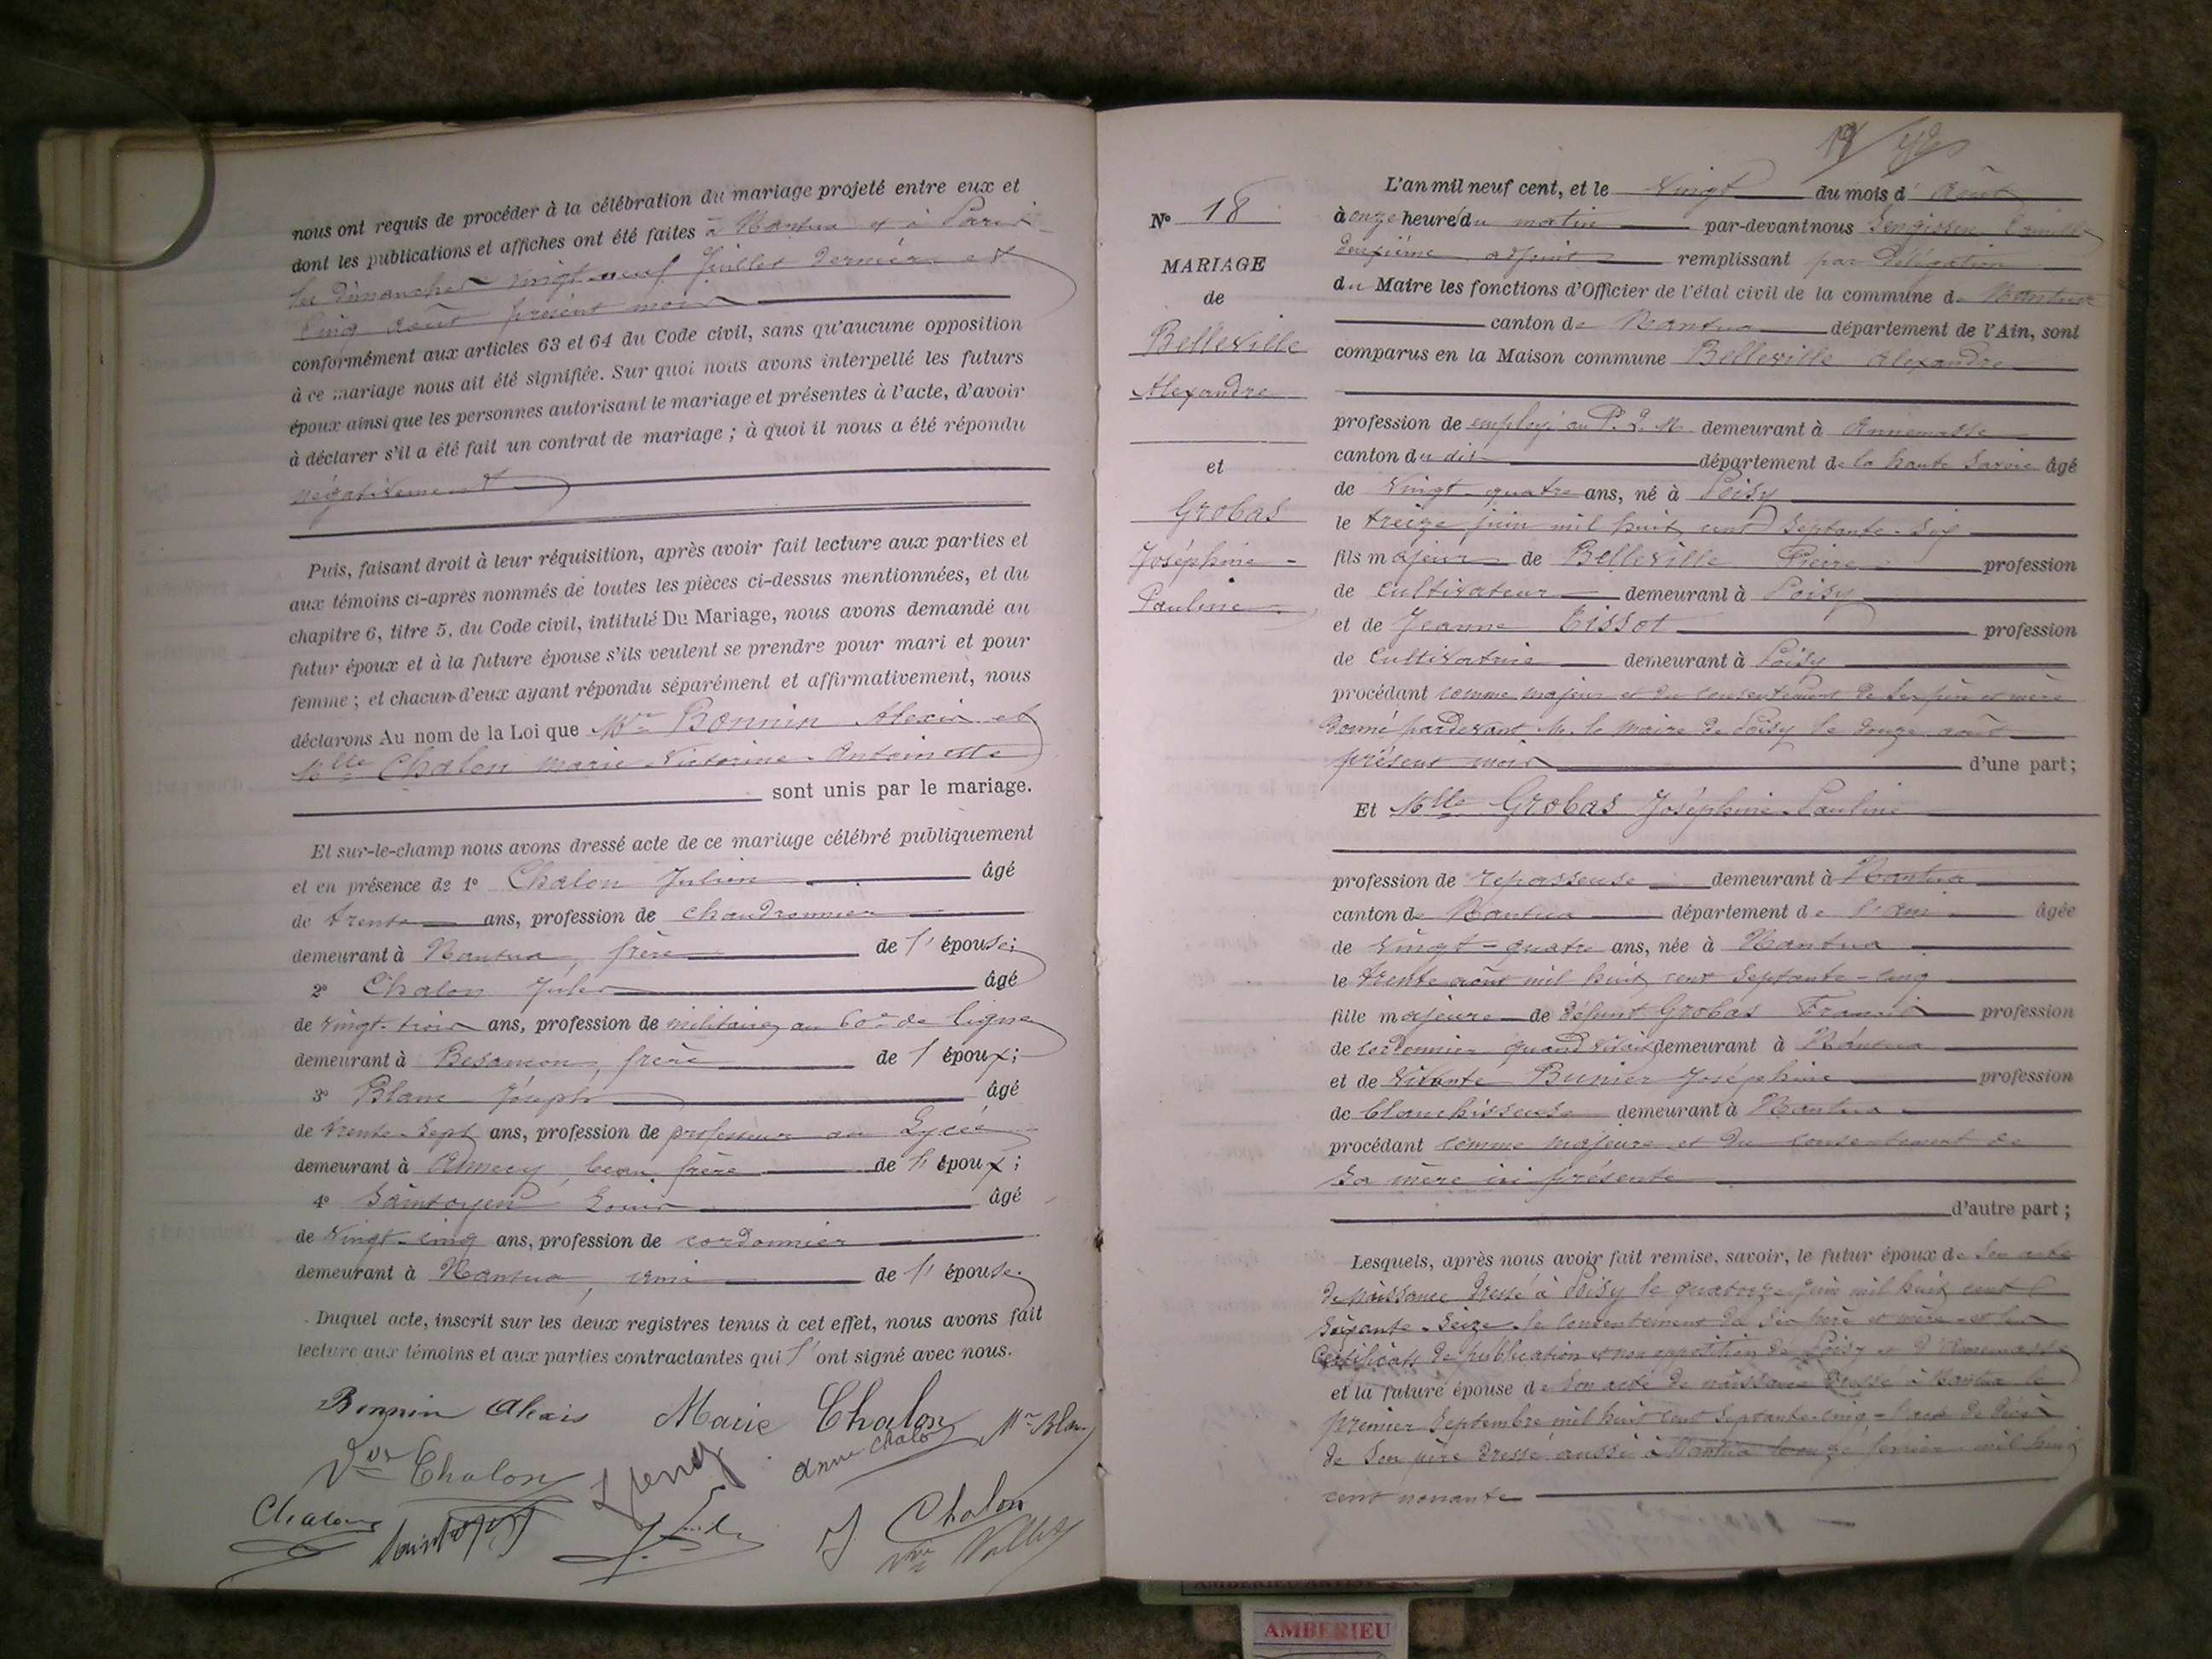 nous ont requis de procéder à la célébration du mariage projeté entre eux et
dont les publications et affiches ont été faites à Nantua et à Paris
les dimanches vingt-neuf Juillet dernier et
cinq août présent mois
conformément aux articles 63 et 64 du Code civil, sans qu'aucune opposition
à ce mariage nous ait été signifiée. Sur quoi nous avons interpellé les futurs
époux ainsi que les personnes autorisant le mariage et présentes à l'acte, d'avoir
à déclarer s'il a été fait un contrat de mariage ; à quoi il nous a été répondu
négativement
Puis, faisant droit à leur réquisition, après avoir fait lecture aux parties et
aux témoins ci-après nommés de toutes les pièces ci-dessus mentionnées, et du
chapitre 6, titre 5, du Code civil, intitulé Du Mariage, nous avons demandé au
futur époux et à la future épouse s'ils veulent se prendre pour mari et pour
femme ; et chacun d'eux ayant répondu séparément et affirmativement, nous
déclarons Au nom de la Loi que Mr Bonnin Alexis et
Mlle Chalon Marie-Victorine-Antoinette
sont unis par le mariage.
Et sur-le-champ nous avons dressé acte de ce mariage célébré publiquement
et en présence de 1° Chalon Julien âgé
de trente ans, profession de chaudronnier
demeurant à Nantua, frère de l'épouse;
2° Chalon Jules âgé
de vingt-trois ans, profession de militaire au 60e de ligne
demeurant à Besançon, frère de l'époux;
3° Blanc Joseph âgé
de trente-sept ans, profession de professeur au Lycée
demeurant à Annecy, beau frère de l'époux;
4° Saintoyen Louis âgé
de vingt-cinq ans, profession de cordonnier
demeurant à Nantua, ami de l'épouse.
Duquel acte, inscrit sur les deux registres tenus à cet effet, nous avons fait
lecture aux témoins et aux parties contractantes qui l'ont signé avec nous.
Bonnin Alexis Marie Chalon Mr Blanc
Vve Chalon Anna Chalon
Chalon J Chalon
N° 18
MARIAGE
de
Belleville
Alexandre
et
Grobas
Joséphine-
Pauline
L'an mil neuf cent, et le vingt du mois d'Août
à onze heures du matin par-devant nous
deuxième adjoint remplissant par délégation
du Maire les fonctions d'Officier de l'état civil de la commune de Nantua
canton de Nantua département de l'Ain, sont
comparus en la Maison commune Belleville Alexandre
profession de employé au P. L. M demeurant à Annemasse
canton du dit département de la haute Savoie âgé
de vingt-quatre ans, né à Poisy
le treize juin mil huit cent septante-six
fils majeur de Belleville Pierre profession
de cultivateur demeurant à Poisy
et de Jeanne Tissot profession
de cultivatrice demeurant à Poisy
procédant comme majeur et du consentement de ses père et mère
donné pardevant M. le maire de Poisy le douze août
présent mois d'une part;
Et Mlle Grobas Joséphine-Pauline
profession de repasseuse demeurant à Nantua
canton de Nantua département de l'Ain âgée
de vingt-quatre ans, née à Nantua
le trente août mil huit cent septante-cinq
fille majeure de défunt Grobas Francis profession
de cordonnier quand vivait demeurant à Nantua
et de vivante Bunier Joséphine profession
de blanchisseuse demeurant à Nantua
procédant comme majeure et du consentement de
sa mère ici présente
d'autre part ;
Lesquels, après nous avoir fait remise, savoir, le futur époux de son acte
de naissance dressé à Poisy le quatorze juin mil huit cent
soixante-seize, le consentement de ses père et mère et les
certificats de publication et non opposition de Poisy et d'Annemasse
et la future épouse de son acte de naissance dressé à Nantua le
premier septembre mil huit cent septante-cinq - l'acte de décès
de son père dressé aussi à Nantua le onze février mil huit
cent nonante
AMBERIEU